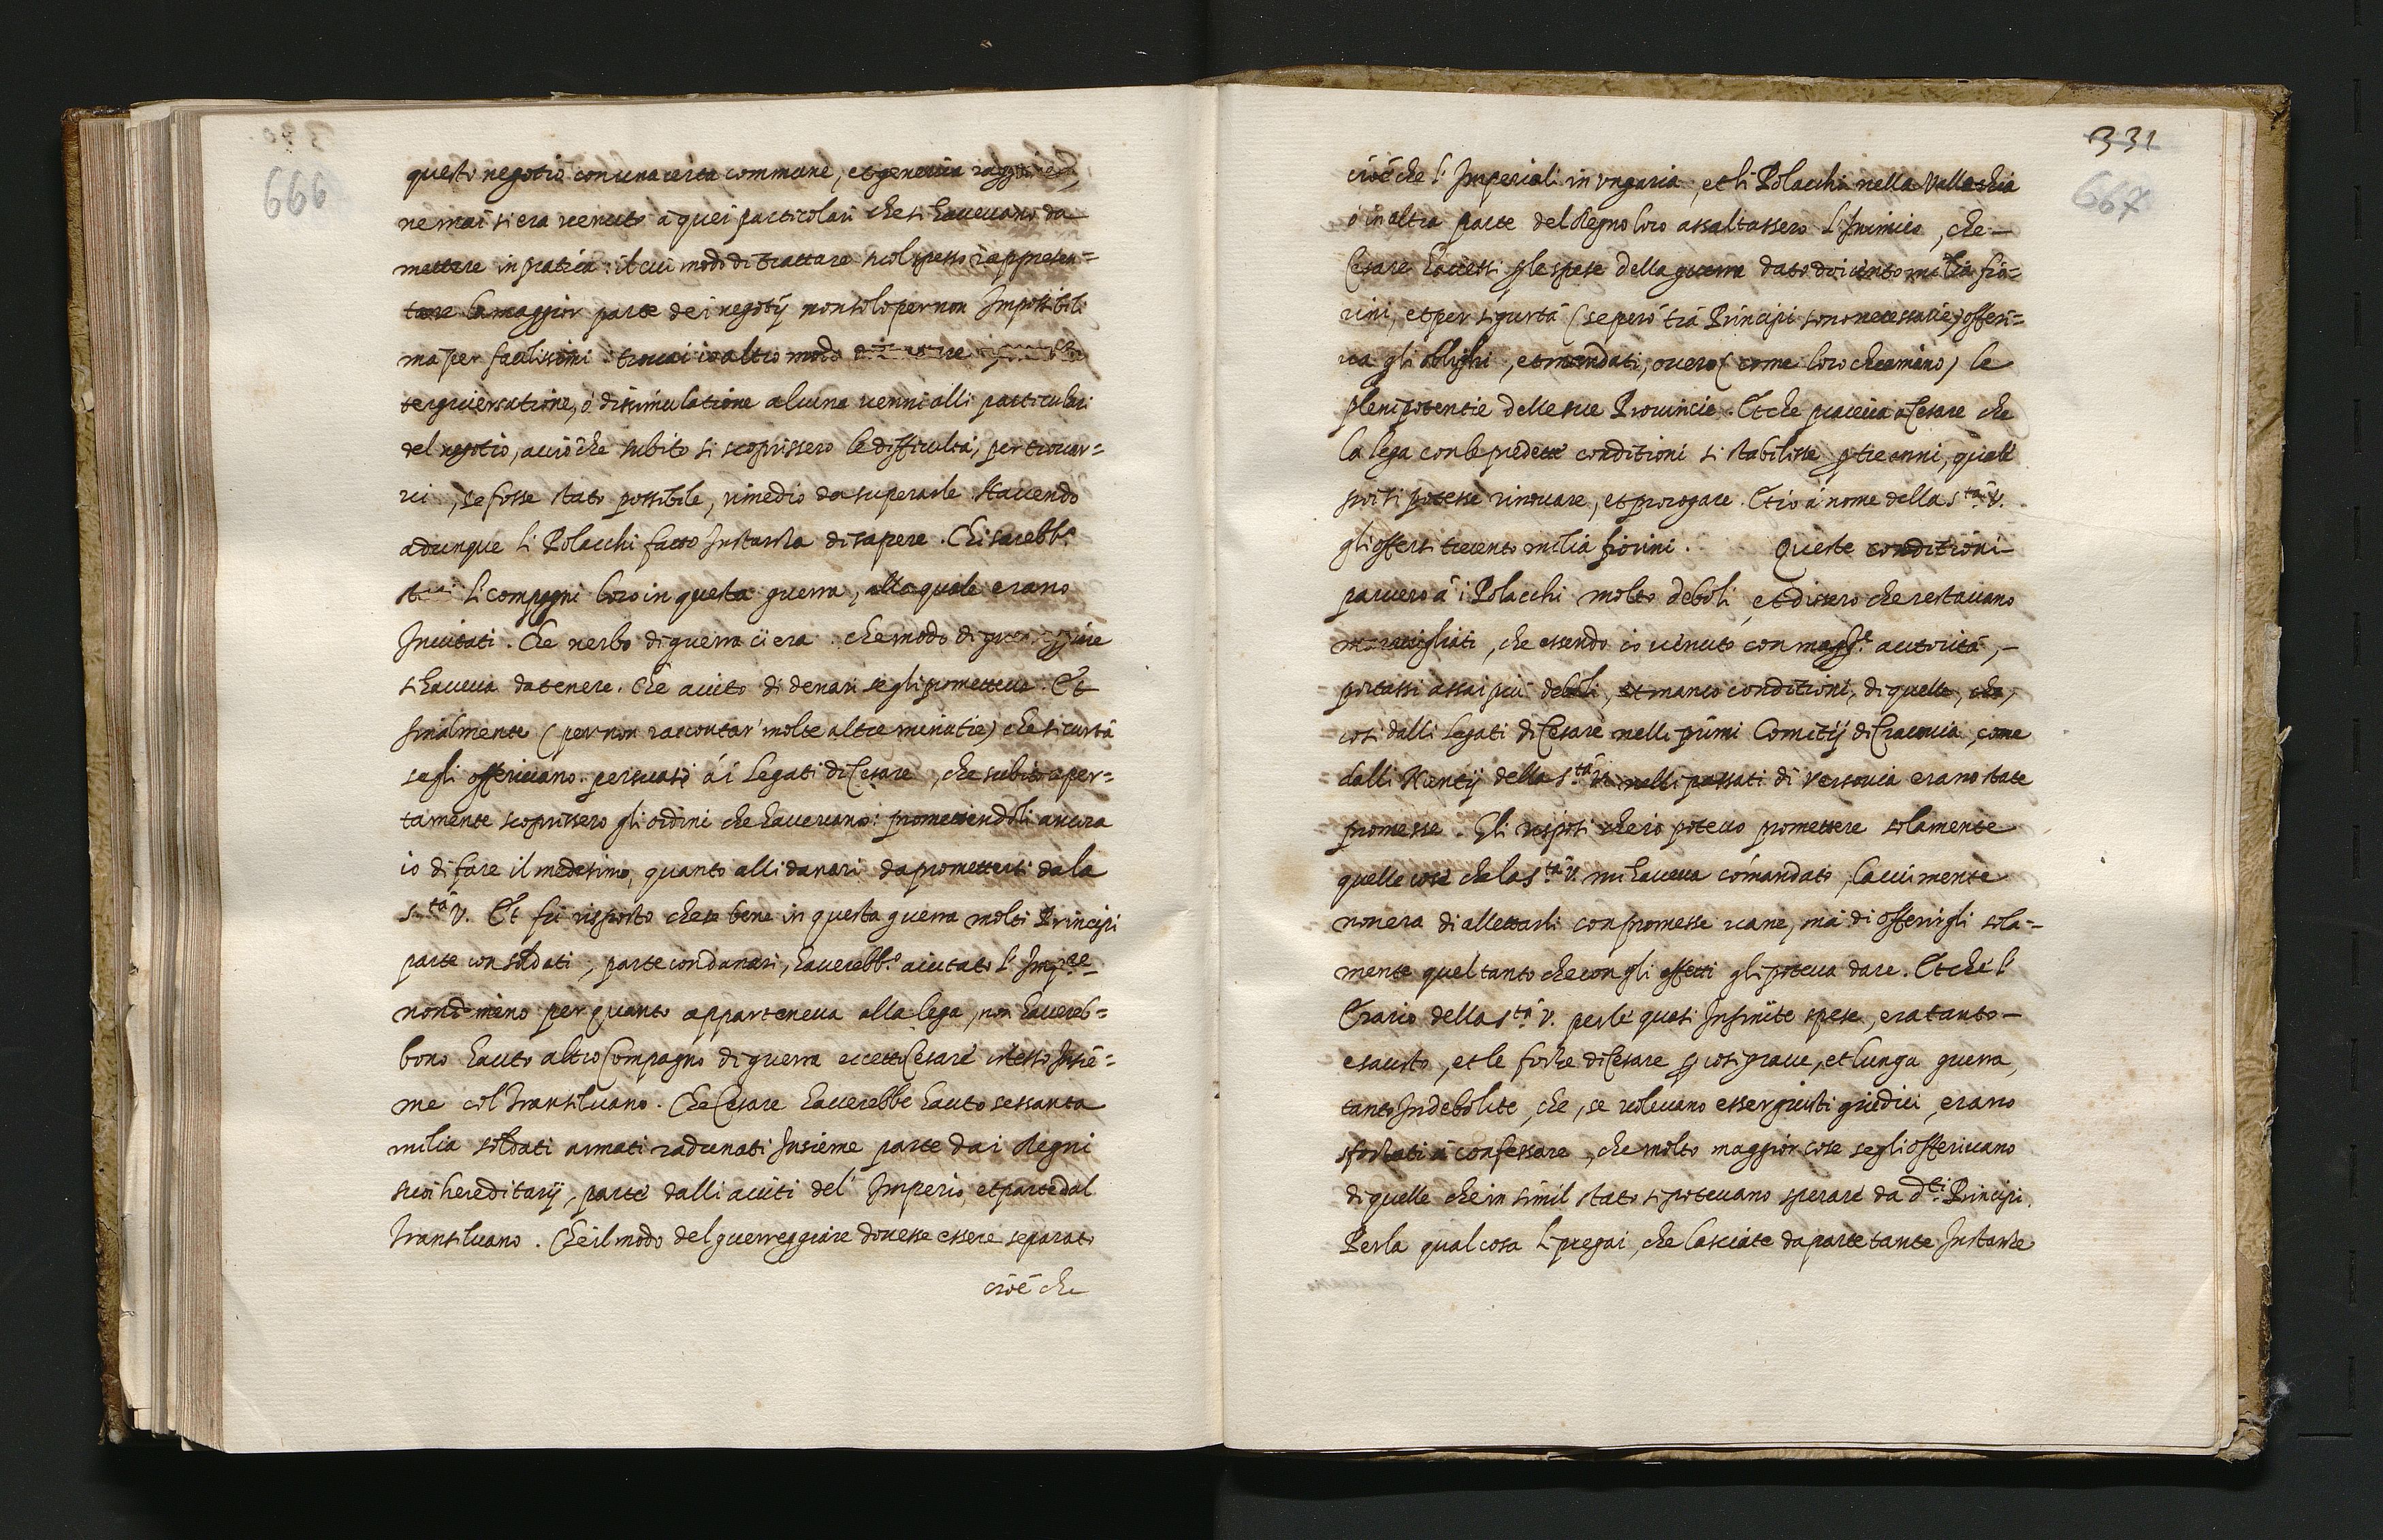 666
questo negotio con una certa commune, et generica
ne mai si era venuto à quei particolari che si havevano da
mettere in pratica: il cui modo di trattare suol spesso rappresen=
tare la maggior parte dei negotij non solo per non Impossibili
ma per facilissimi: trovai io altro modo
tergiversatione, ò dissimulatione alcuna venni alli particulari
del negotio, acciò che subito si scoprissero le difficultà, per trovar=
vi, se fosse stato possibile, rimedio da superarle. Havendo
adunque li Polacchi fatto Instanza di sapere. Chi sarebb.º
li compagni loro in questa guerra, alla quale erano
Invitati. Che nerbo di guerra ci era. che modo di guerreggiare
s'haveva da tenere. Che aiuto di denari se gli prometteva. Et
finalmente (per non raccontar' molte altre minutie) che sicurtà
se gli offerivano. persuasi á i Legati di Cesare, che subito aper=
tamente scoprissero gli ordini che havevano: promettendoli ancora
io di fare il medesimo, quanto alli danari da promettersi da la
S.tà V. Et fù risposto che se bene in questa guerra molti Principi
parte con soldati, parte con danari, haverebb.º aiutato l'
nondimeno per quanto apparteneva alla lega, non havereb=
bono hauto altro Compagno di guerra eccetto Cesare istesso Insie=
me col Transilvano. Che Cesare haverebbe hauto sessanta
milia soldati armati radunati Insieme parte da i Regni
suoi hereditarij, parte dalli aiuti del' Imperio, et parte dal
Transilvano. Che il modo del guerreggiare dovesse essere separato
cioè che
331
667
cioè che l' Imperiali in Ungaria, et li Polacchi nella Vallachia
ò in altra parte del Regno loro assaltassero l' Inimico, che
Cesare havessi per le spese della guerra dato doicento milia fio=
rini, et per sigurtà (se però trà Principi sono necessarie) offeri=
va gli oblighi, et mandati, overo (come loro chiamano) le
plenipotentie delle sue Provincie. Et che piaceva a Cesare che
la lega con le predette conditioni si stabilisse per tre anni, quale
poi si potesse rinovare, et prorogare. Et io à nome della S.tà V.
gli offersi trecento milia fiorini. Queste conditioni
parvero à i Polacchi molto deboli, et dissero che restavano
maravigliati, che essendo io venuto con magg.re autorità,
portassi assai più deboli, et manco conditioni, di quelle, che,
cosi dalli Legati di Cesare nelli primi Comitij di Cracovia, come
dalli Nuntij della S.tà V. nelli passati di Versovia erano state
promesse. Gli risposi che io potevo promettere solamente
quelle cose che la S.tà V. mi haveva comandato, la cui mente
non era di allettarli con promesse vane, mà di offerirgli sola=
mente quel tanto che con gli effetti gli poteva dare. Et che l'
Erario della S.tà V. per le quasi Infinite spese, era tanto
esausto, et le forze di Cesare per cosi grave, et lunga guerra,
tanto Indebolite, che, se volevano esser giusti giudici, erano
sforzati à confessare, che molto maggior cose se gli offerivano
di quelle che in simil stato si potevano sperare da d.ti Principi.
Per la qual cosa li pregai, che lasciate da parte tante Instanze